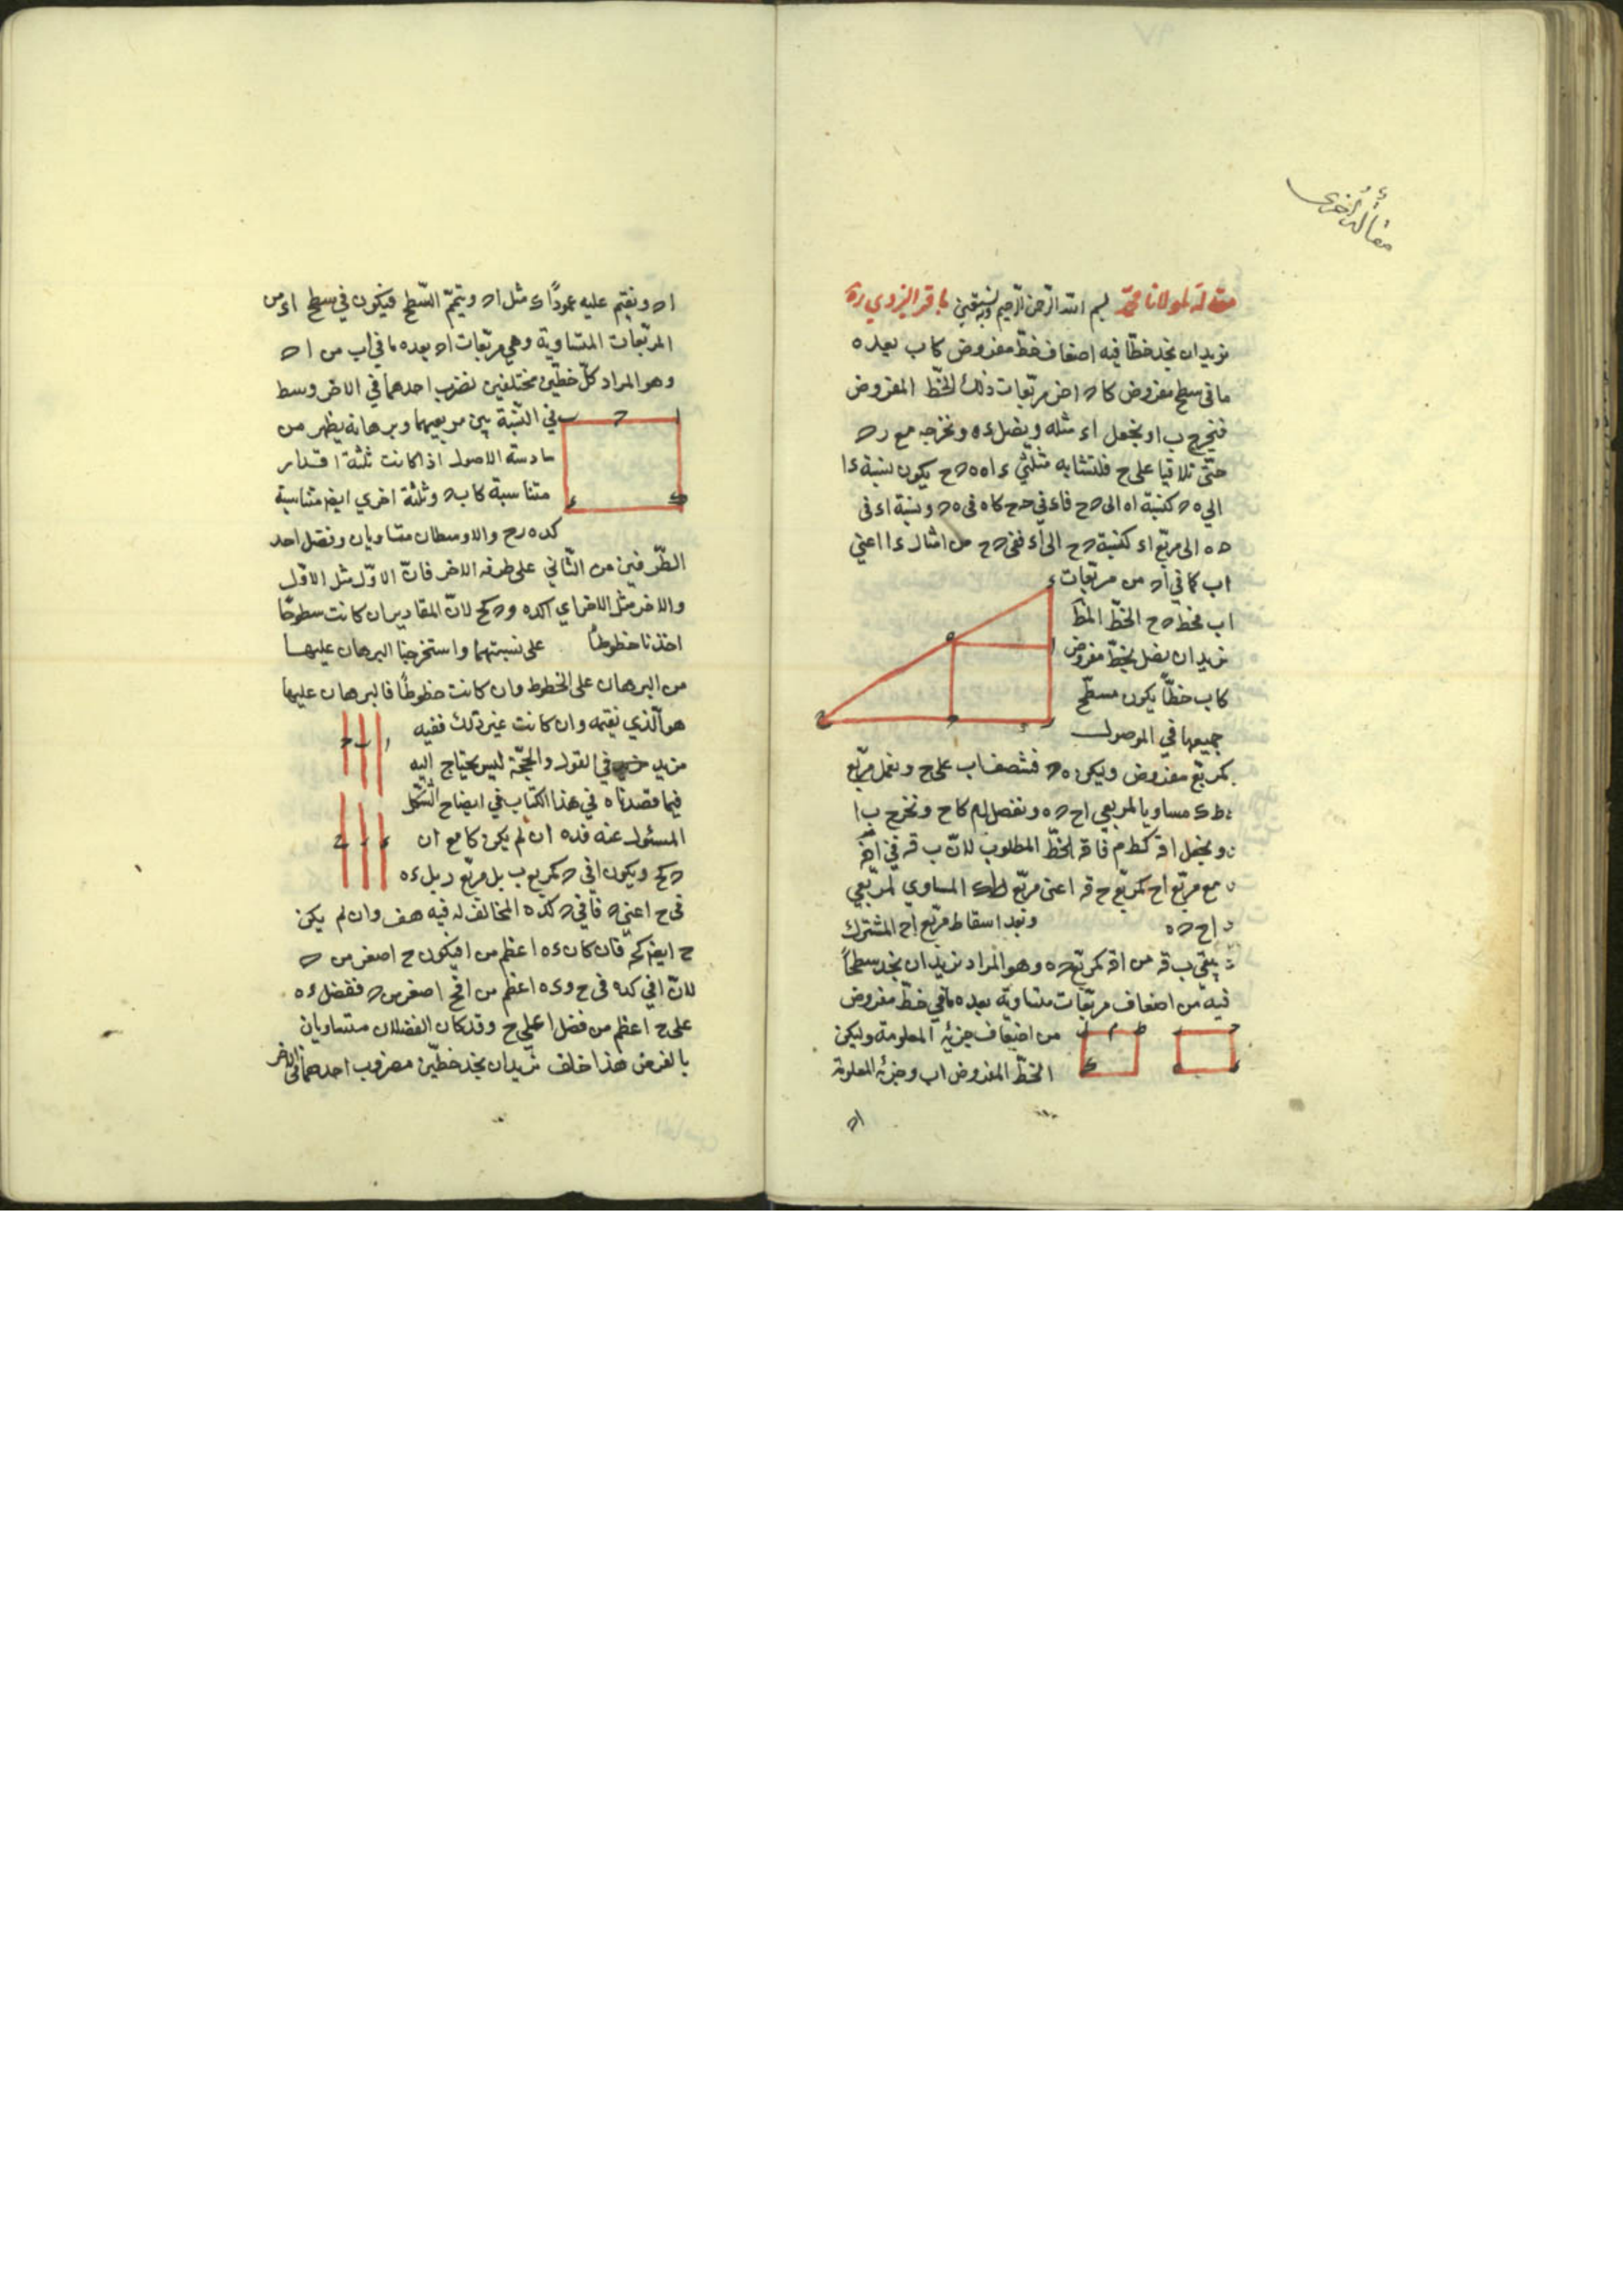 مقالة أخرى
مقالة لمولانا محمد بسم الله الرحمن الرحيم وبه نستعين باقر اليزدي ره
نريد ان نجد خطا فيه اضعاف خط مفروض كاب بعده
ما في سطح مفروض كا ح من مربعات ذلك الخط المفروض
فنخرج ب ا ونجعل اء مثله ونصل ءه ونخرجه مع ر ح
حتى تلاقيا على ح فلتشابه مثلثي ء ا ه ه ح ح يكون نسبة ءا
الى ه ح كنسبة اه الى ح ح فاء في ح ح كاه في ه ح ونسبة اء في
ح ه الى مربع اء كنسبة ح ح الى اء ففي ح ح من امثال ءا اعني
اب كما في اح من مربعات
اب فخط ح ح الخط المط
نريد ان نصل بخط مفروض
كاب خطا يكون مسطح
جميعها في الموصول
كمربع مفروض وليكن ه ح فننصف اب على ح ونعمل مربع
ط ك مساويا لمربعي اح ح ه ونفصل ل م كاح ونخرج ب ا
ونجعل اق كط م فاق الخط المطلوب لان ب ق في اق
مع مربع اح كمربع ح ق اعنى مربع ط ك المساوي لمربعي
اح ح ه وبعد اسقاط مربع اح المشترك
يبقى ب ق من اق كمربع ح ه وهو المراد نريد ان نجد سطحا
فيه من اضعاف مربعات متساوية بعده ما في خط مفروض
من اضعاف جزئه المعلومة وليكن
الخط المفروض اب وجزئه المعلومة
اح
اح ونقيم عليه عمودا اء مثل اح ونتمم السطح فيكون في سطح اء من
المربعات المتساوية وهي مربعات اح بعده ما في اب من اح
وهو المراد كل خطين مختلفين نضرب احدهما في الاخر وسط
في النسبة بين مربعيهما وبرهانه يظهر من
سادسة الاصول اذا كانت ثلثة اقدار
متناسبة كاب ح وثلثة اخرى ايضا متناسبة
كده رح والاوسطان متساويان وفضل احد
الطرفين من الثاني على طرفه الاخر فان الاول مثل الاول
والاخر مثل الاخر اي ا كده و ح كح لان المقادير ان كانت سطوحا
اخذنا خطوطا على نسبتهما واستخرجنا البرهان عليها
من البرهان على الخطوط وان كانت خطوطا فالبرهان عليها
هو الذي نقيمه وان كانت غير ذلك ففيه
مزيد في القول والحجة ليس يحتاج اليه
فيما قصدناه في هذا الكتاب في ايضاح الشكل
المسئول عنه فده ان لم يكن كا مع ان
ح كح ويكون ا في ح كمربع ب بل مربع ر بل ءه
في ح اعني ح فا في ح كده المخالف له فيه هف وان لم يكن
ح ايضا كح فان كان ءه اعظم من ا فيكون ح اصغر من ح
لان ا في ح كده في ح و ءه اعظم من ا فح اصغر من ح ففضل ءه
على ح اعظم من فضل ا على ح وقد كان الفضلان متساويان
بالفرض هذا خلف نريد ان نجد خطين مضروب احدهما في الاخر